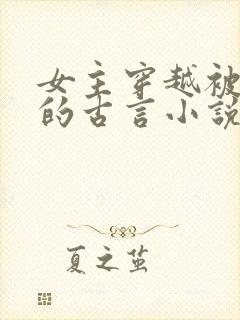 女主穿越被
的古言小説
夏之茧